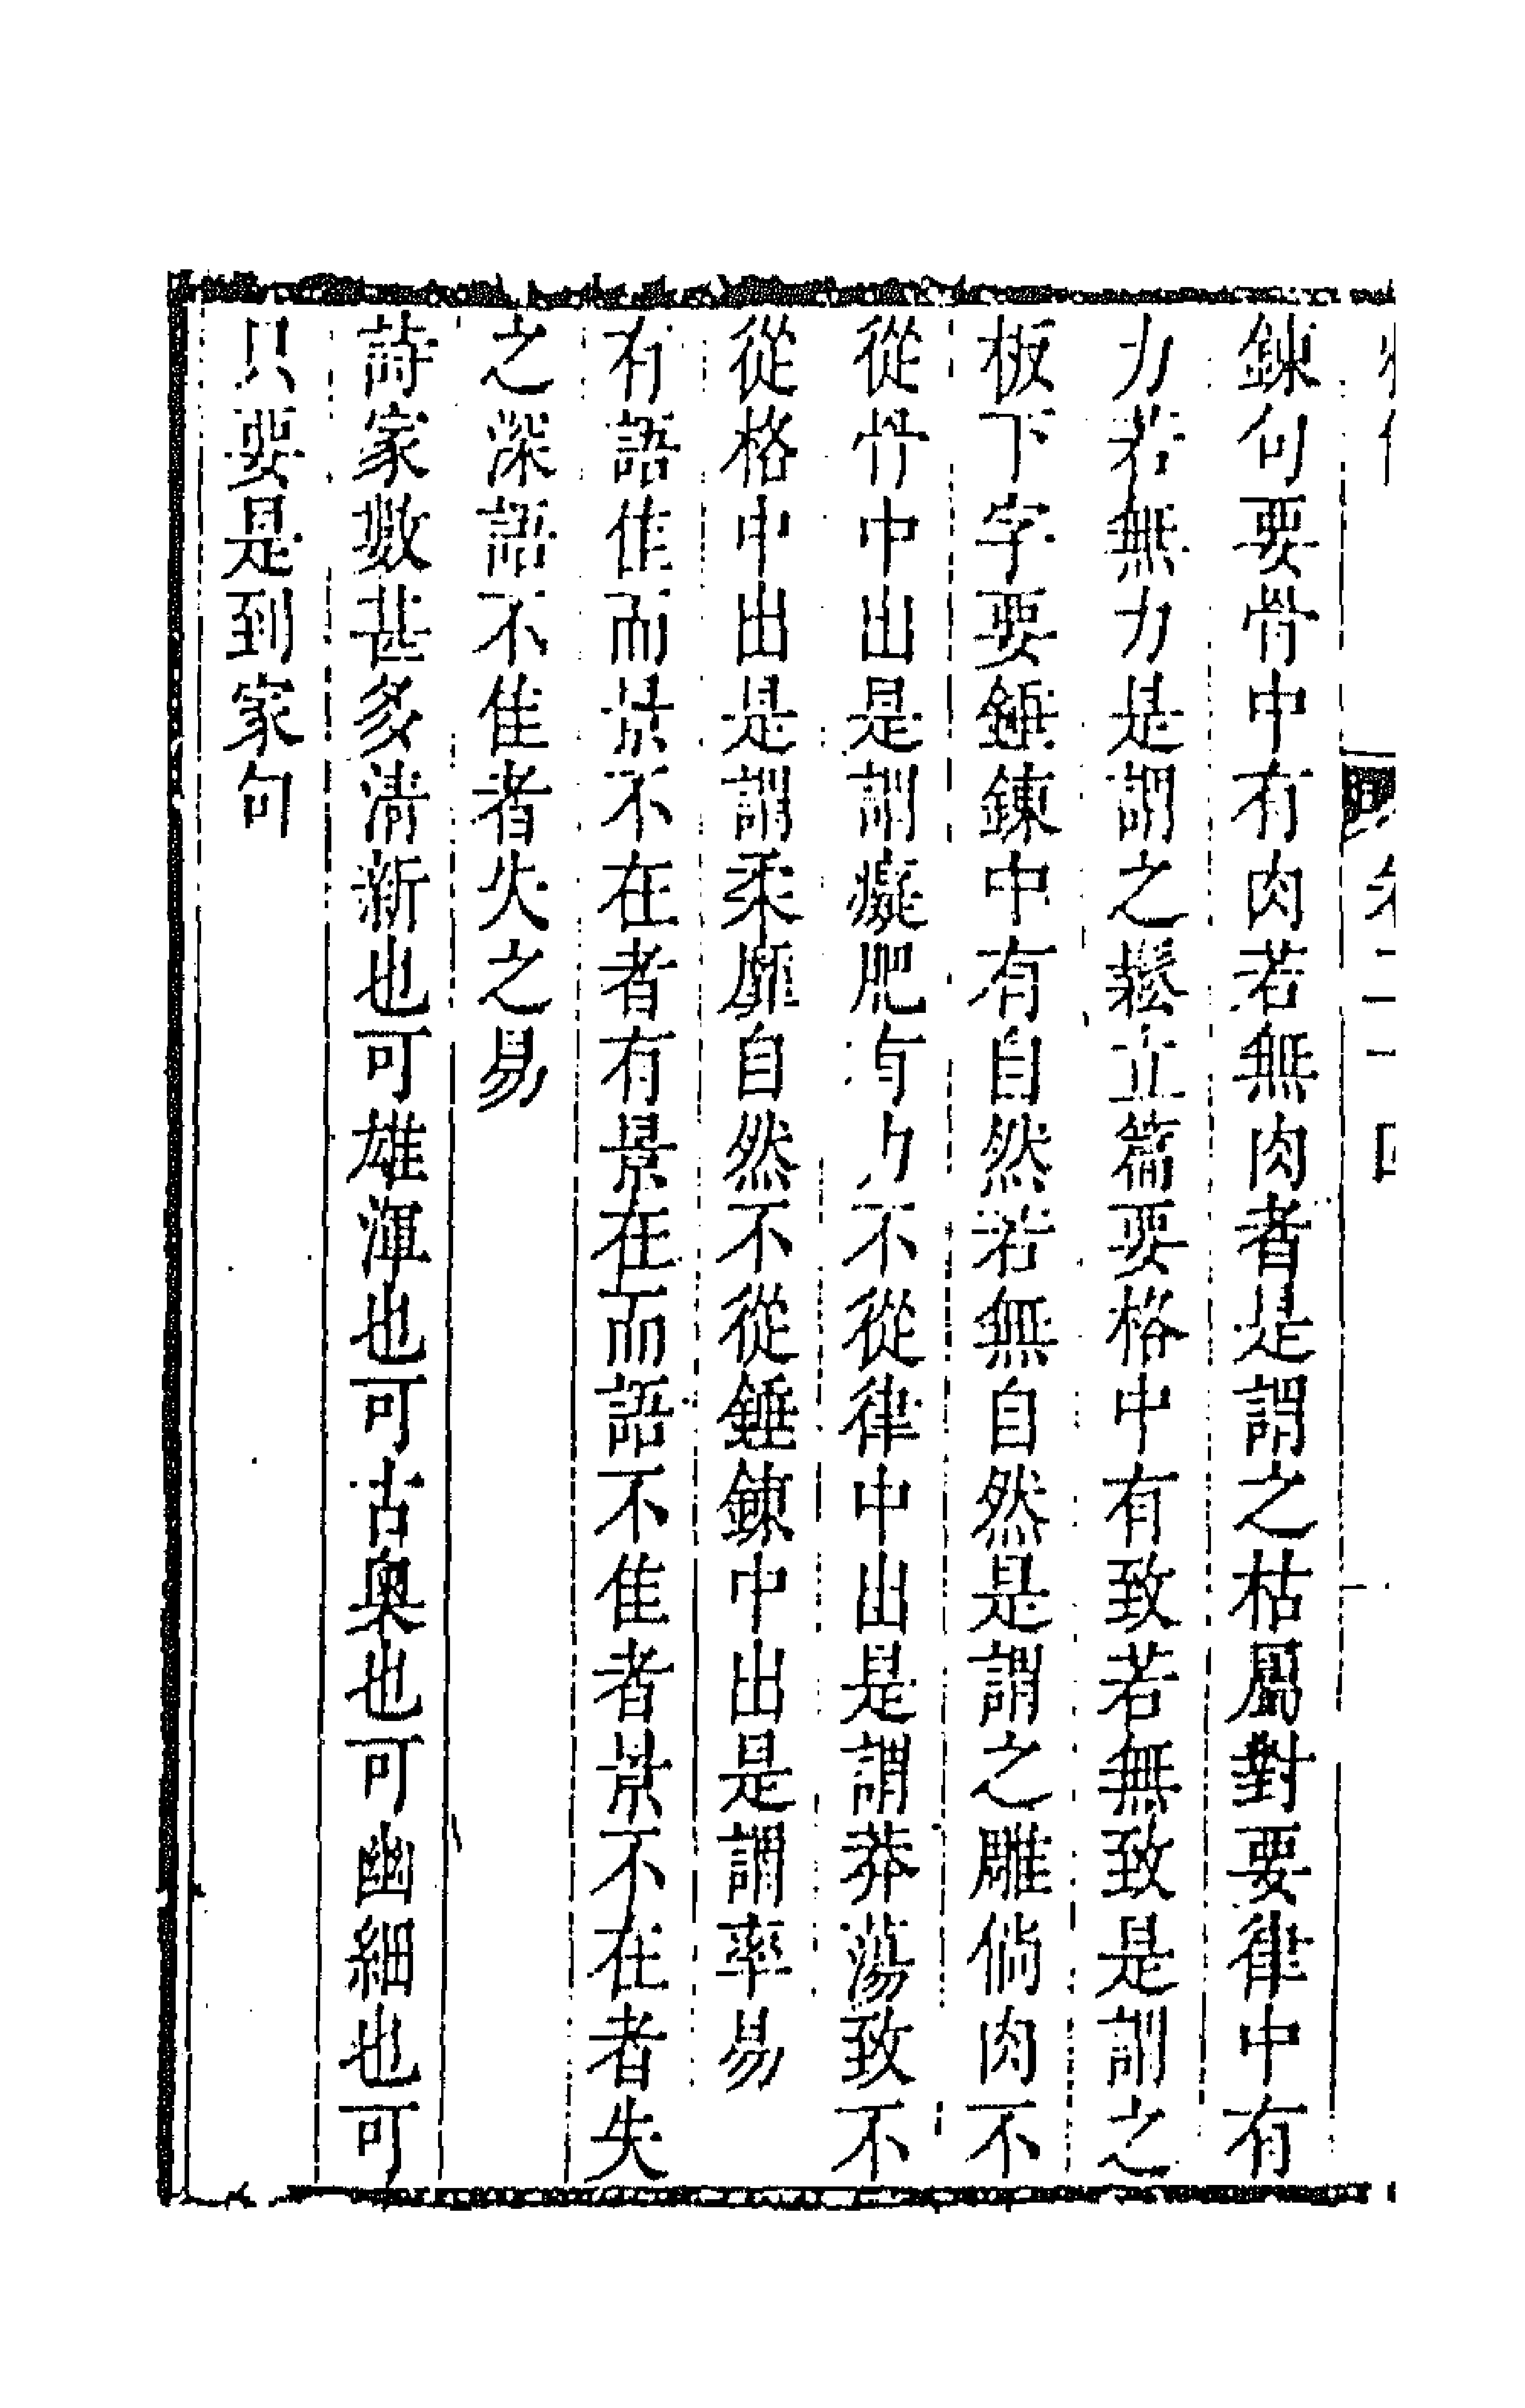 卷二十四
鍊句要骨中有肉若無肉者是謂之枯屬對要律中有
力若無力是謂之鬆立篇要格中有致若無致是謂之
板下字要錘鍊中有自然若無自然是謂之雕倘肉不
從骨中出是謂癡肥有力不從律中出是謂莽蕩致不
從格中出是謂柔靡自然不從錘鍊中出是謂率易
有語隹而景不在者有景在而語不隹者景不在者失
之深語不隹者失之易
詩家數甚多清新也可雄渾也可古奧也可幽細也可
只要是到家句